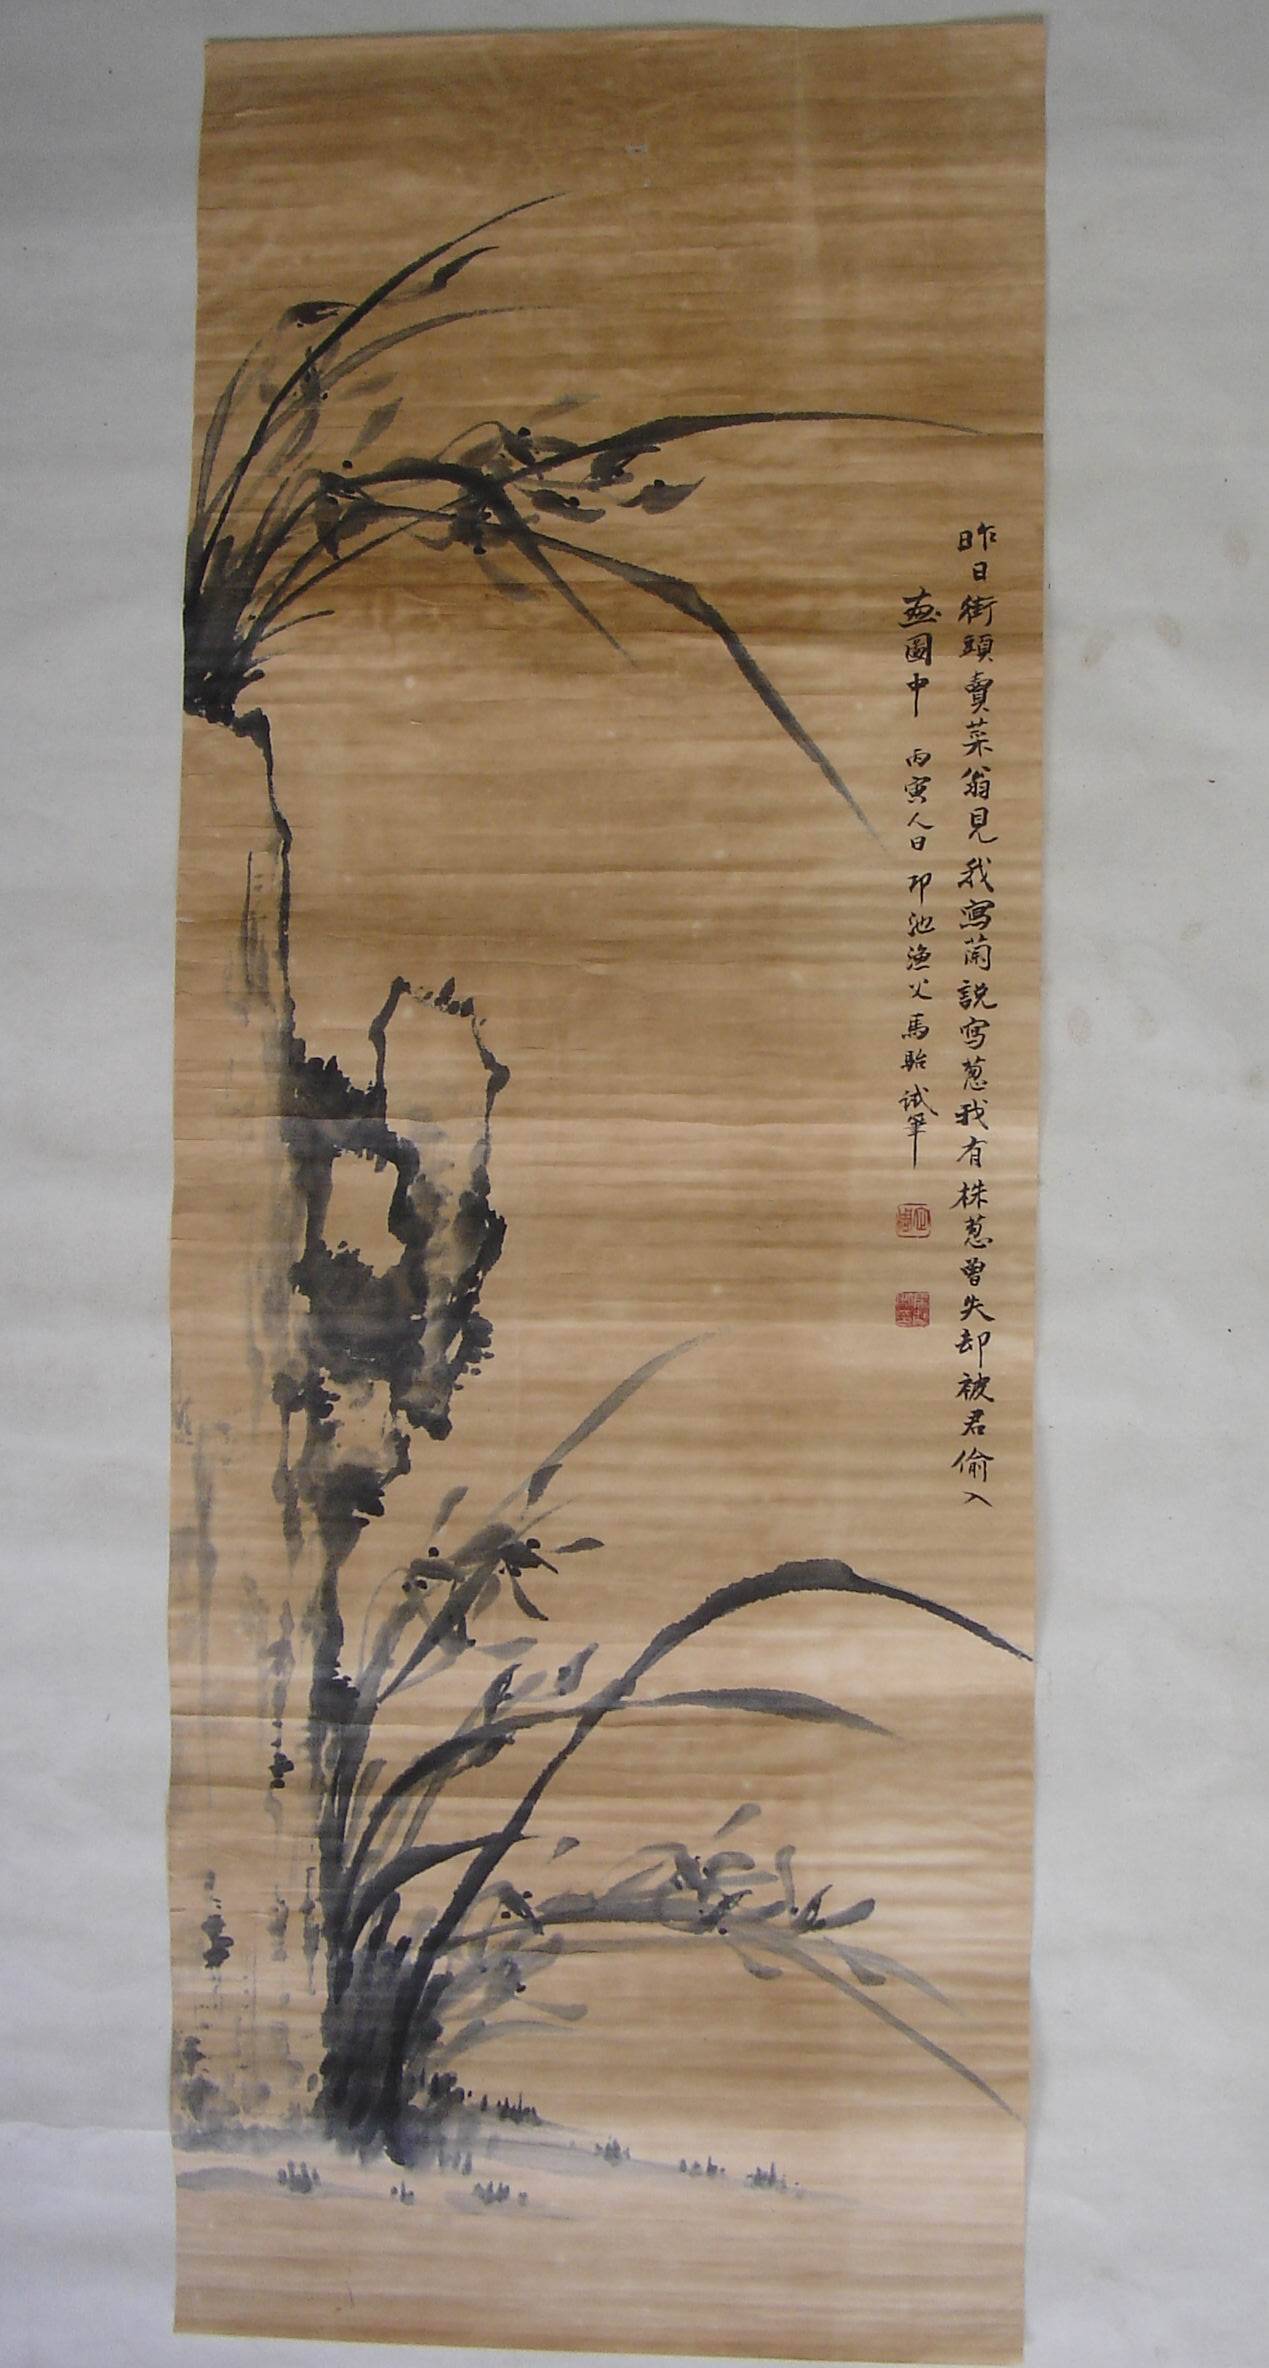 昨日街頭賣菜翁見我寫蘭説寫葱我有株葱曾失却被君偷入
畫圖中 丙寅人日 印池漁父馬貽試筆